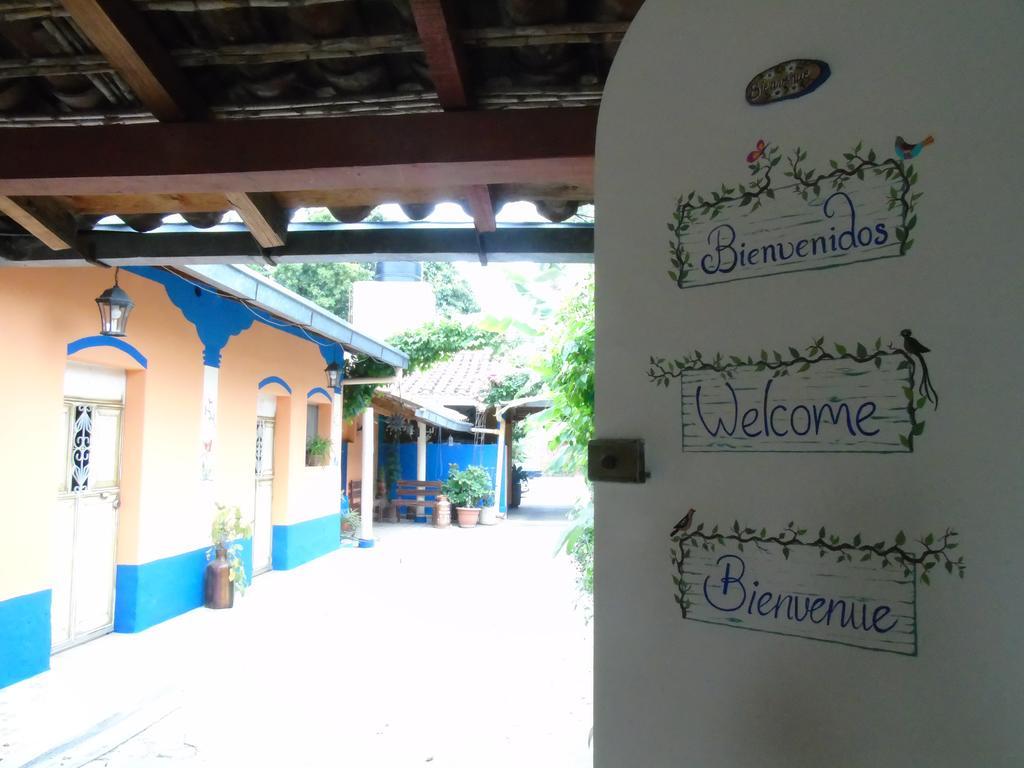 Bienvenidos
Welcome
Bienvenue